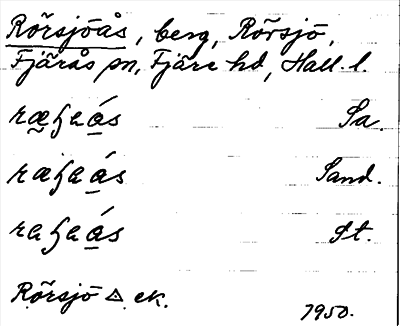 Rörsjöås, berg, Rörsjö,
Fjärås sn, Fjäre hd, Hall. l.
ræʒaás Sa.
ræʒaás Sand.
raʒaás St.
Rörsjö △ ek.
1950.